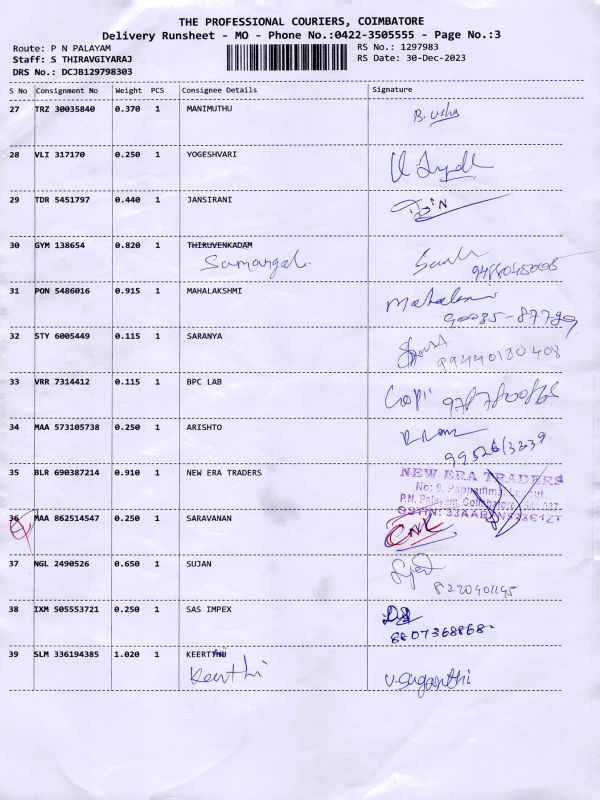 THE PROFESSIONAL COURIERS, COIMBATORE
Delivery Runsheet - MO - Phone No.:0422-3505555 - Page No.:3
Route: P N PALAYAM RS No.: 1297983
Staff: S THIRAVGIYARAJ RS Date: 30-Dec-2023
DRS No.: DCJB129798303
S No Consignment No Weight PCS Consignee Details Signature
27 TRZ 30035840 0.370 1 MANIMUTHU B. usha
28 VLI 317170 0.250 1 YOGESHVARI
29 TDR 5451797 0.440 1 JANSIRANI
30 GYM 138654 0.820 1 THIRUVENKADAM
31 PON 5486016 0.915 1 MAHALAKSHMI
90035-87789
32 STY 6005449 0.115 1 SARANYA
99440130408
33 VRR 7314412 0.115 1 BPC LAB Gopi
34 MAA 573105738 0.250 1 ARISHTO
35 BLR 690387214 0.910 1 NEW ERA TRADERS NEW ERA TRADERS
No: 9, Pappammal
P.N. Palayam, Coimbatore - 641 037.
GSTIN: 33AAB
36 MAA 862514547 0.250 1 SARAVANAN
37 NGL 2490526 0.650 1 SUJAN
8220401145
38 IXM 505553721 0.250 1 SAS IMPEX
8807368868
39 SLM 336194385 1.020 1 KEERTHU
Keerthi V-suganthi